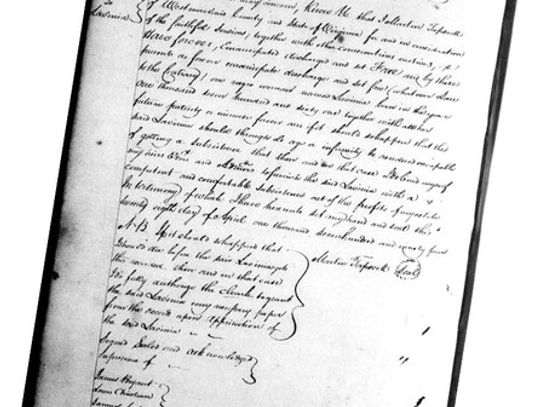 To
Lavinia
may concern, Know Ye that I Martin Tapscott
of Westmoreland County and State of Virginia for and in consideration
of the faithful Services, together with other considerations
have forever, Emancipated discharged and set Free and by these
presents do forever emancipate discharge and set free (whatever Law
to the Contrary) one negro woman named Lavinia born in the year
one thousand seven hundred and sixty one together with all her
future
said Lavinia should through old age or infirmity be rendered incapable
of getting a subsistence that then and in that case I do bind myself
my heirs Exrs and Admors to furnish the said Lavinia with a
competent and comfortable Subsistence out of the profits of my estate
In testimony of which I have hereunto set my hand and seal this
twenty eight day of April one thousand seven hundred and ninety four
N.B. If it should so happen that
I should die before the said Lavinia gets
this record, then and in that case
I do fully authorize the Clerk to grant
the said Lavinia any necessary paper
from the record upon application of
the said Lavinia
Martin Tapscott Seal
Signed Sealed and acknowledged
In presence of
James Bryant
Lewis Christian
Samuel